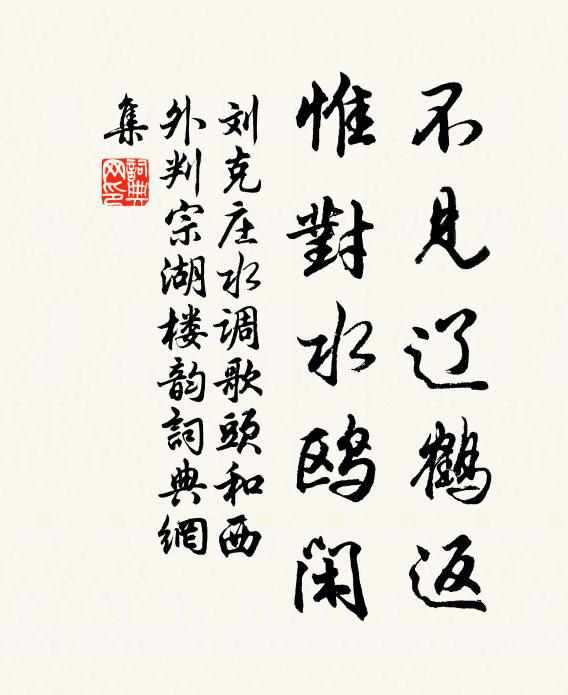 不见辽鹤返
惟對水鸥闲
刘克庄水调歌頭和西
外判宗湖楼韵詞典網
集
詞典网印